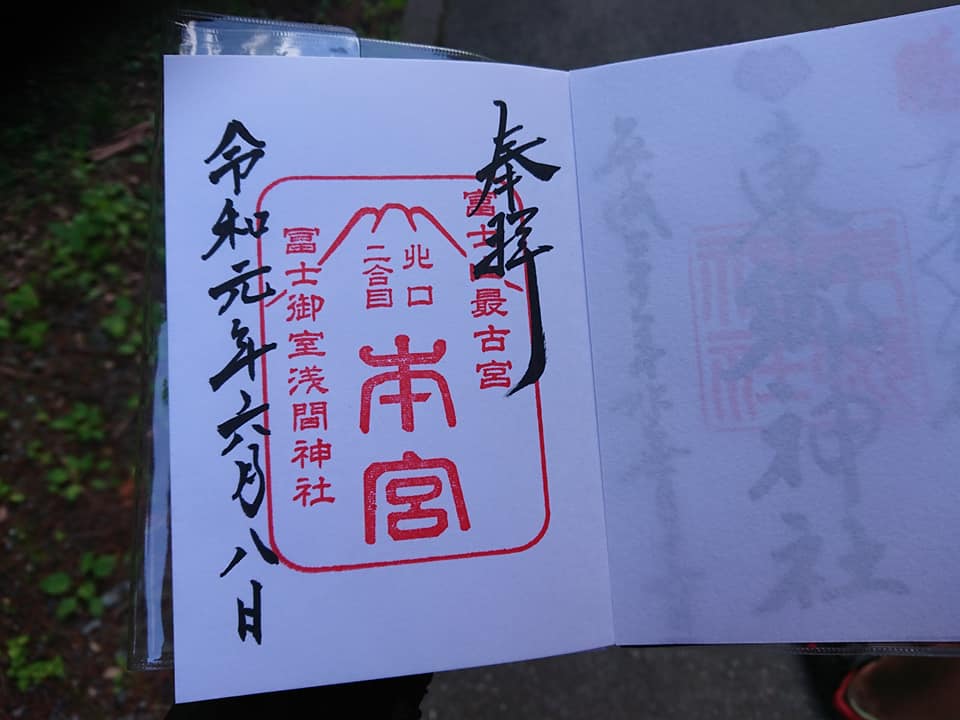 奉拝
富士山最古宮
北口
二合目
本宮
冨士御室浅間神社
令和元年六月八日
神社